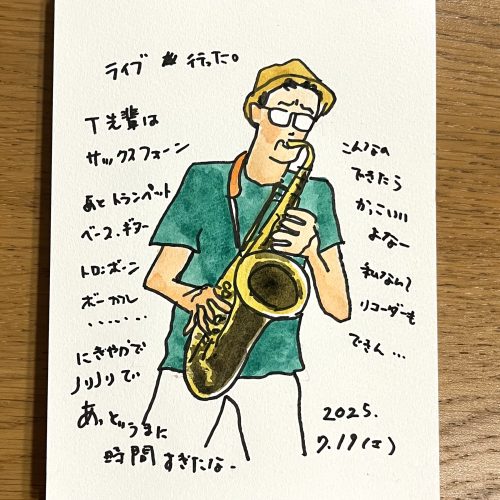 ライブ 行った。
T先輩は
サックスフォーン
あとトランペット
ベース、ギター
トロンボーン
ボーカル
.......
にぎやかで
ノリノリで
あっとゆうまに
時間すぎたなー
こんなの
できたら
かっこいい
よなー
私なんて
リコーダーも
できん...
2025.
7.19(土)